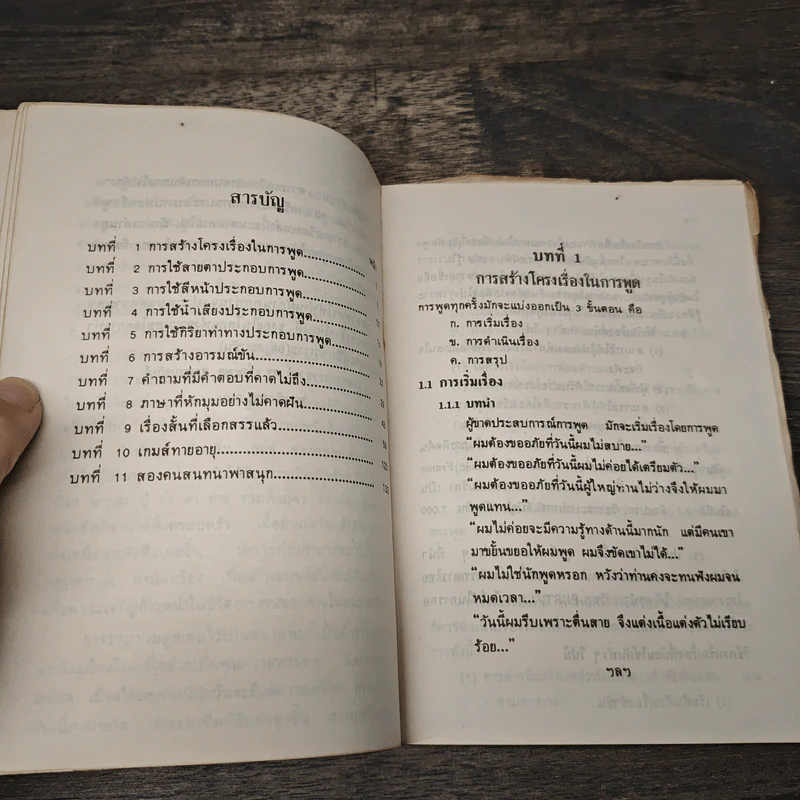 สารบัญ
บทที่ 1 การสร้างโครงเรื่องในการพูด
บทที่ 2 การใช้สายตาประกอบการพูด
บทที่ 3 การใช้สีหน้าประกอบการพูด
บทที่ 4 การใช้น้ำเสียงประกอบการพูด
บทที่ 5 การใช้กิริยาท่าทางประกอบการพูด
บทที่ 6 การสร้างอารมณ์ขัน
บทที่ 7 คำถามที่มีคำตอบที่คาดไม่ถึง
บทที่ 8 ภาษาที่หักมุมอย่างไม่คาดฝัน
บทที่ 9 เรื่องสั้นที่เลือกสรรแล้ว
บทที่ 10 เกมส์ทายอายุ
บทที่ 11 สองคนสนทนาพาสนุก
บทที่ 1
การสร้างโครงเรื่องในการพูด
การพูดทุกครั้งมักจะแบ่งออกเป็น 3 ขั้นตอน คือ
ก. การเริ่มเรื่อง
ข. การดำเนินเรื่อง
ค. การสรุป
1.1 การเริ่มเรื่อง
1.1.1 บทนำ
ผู้ขาดประสบการณ์การพูด มักจะเริ่มเรื่องโดยการพูด
“ผมต้องขออภัยที่วันนี้ผมไม่สบาย...”
“ผมต้องขออภัยที่วันนี้ผมไม่ค่อยได้เตรียมตัว...”
“ผมต้องขออภัยที่วันนี้ผู้ใหญ่ท่านไม่ว่างจึงให้ผมมา
พูดแทน...”
“ผมไม่ค่อยจะมีความรู้ทางด้านนี้มากนัก แต่มีคนเขา
มาขยั้นขยอให้ผมพูด ผมจึงขัดเขาไม่ได้...”
“ผมไม่ใช่นักพูดหรอก หวังว่าท่านคงจะทนฟังผมจน
หมดเวลา...”
“วันนี้ผมรีบเพราะตื่นสาย จึงแต่งเนื้อแต่งตัวไม่เรียบ
ร้อย...”
ฯลฯ